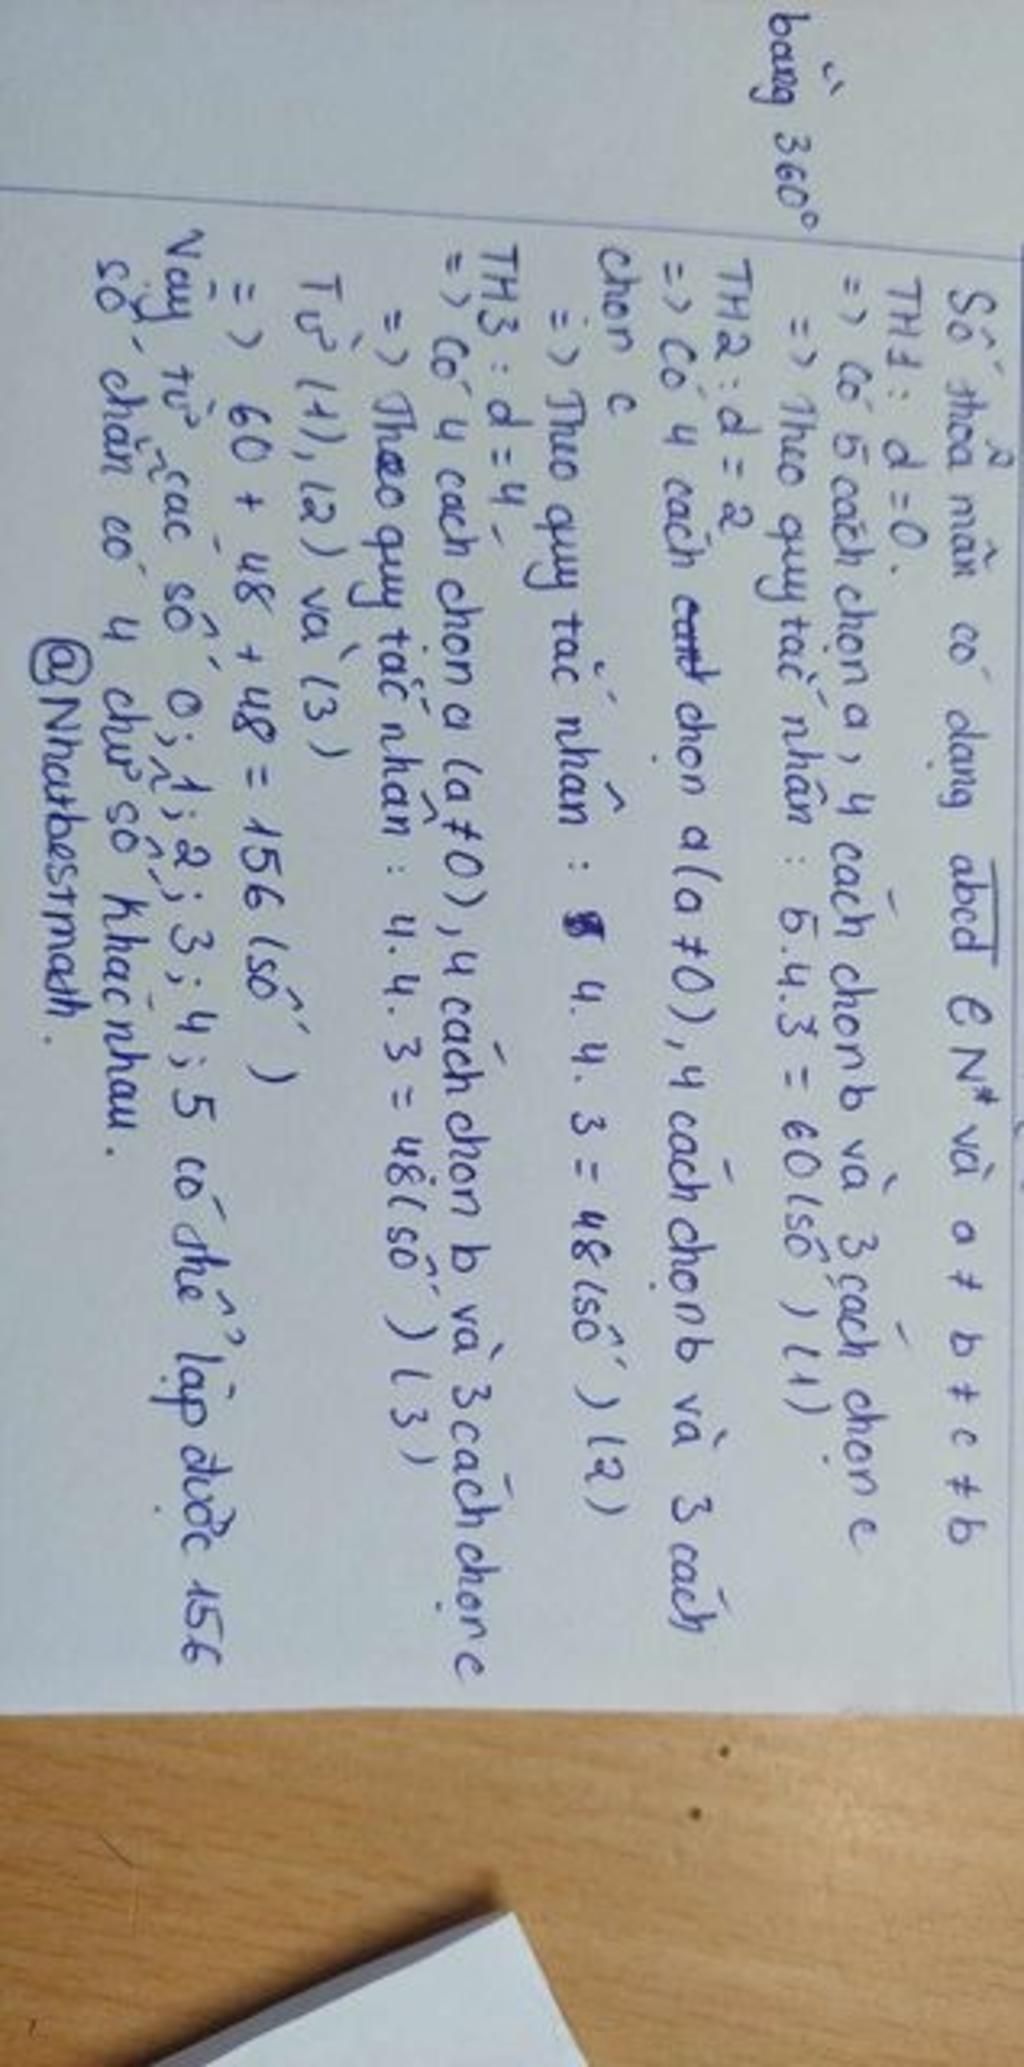 bằng 360°
Số thỏa mãn có dạng abcd ∈ N* và a ≠ b ≠ c ≠ b
TH1: d = 0.
=> Có 5 cách chọn a, 4 cách chọn b và 3 cách chọn c
=> Theo quy tắc nhân: 5.4.3 = 60 (số) (1)
TH2: d = 2
=> Có 4 cách chọn a (a ≠ 0), 4 cách chọn b và 3 cách
chọn c
=> Theo quy tắc nhân: 4.4.3 = 48 (số) (2)
TH3: d = 4
=> Có 4 cách chọn a (a ≠ 0), 4 cách chọn b và 3 cách chọn c
=> Theo quy tắc nhân: 4.4.3 = 48 (số) (3)
Từ (1), (2) và (3)
=> 60 + 48 + 48 = 156 (số)
Vậy từ các số 0; 1; 2; 3; 4; 5 có thể lập được 156
số chẵn có 4 chữ số khác nhau.
@Nhatbestmath.